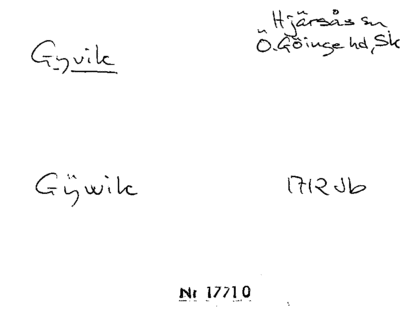 Gyvik
Hjärsås sn
Ö. Göinge hd, Sk
Gÿwik
1712 Jb
Nr 17710